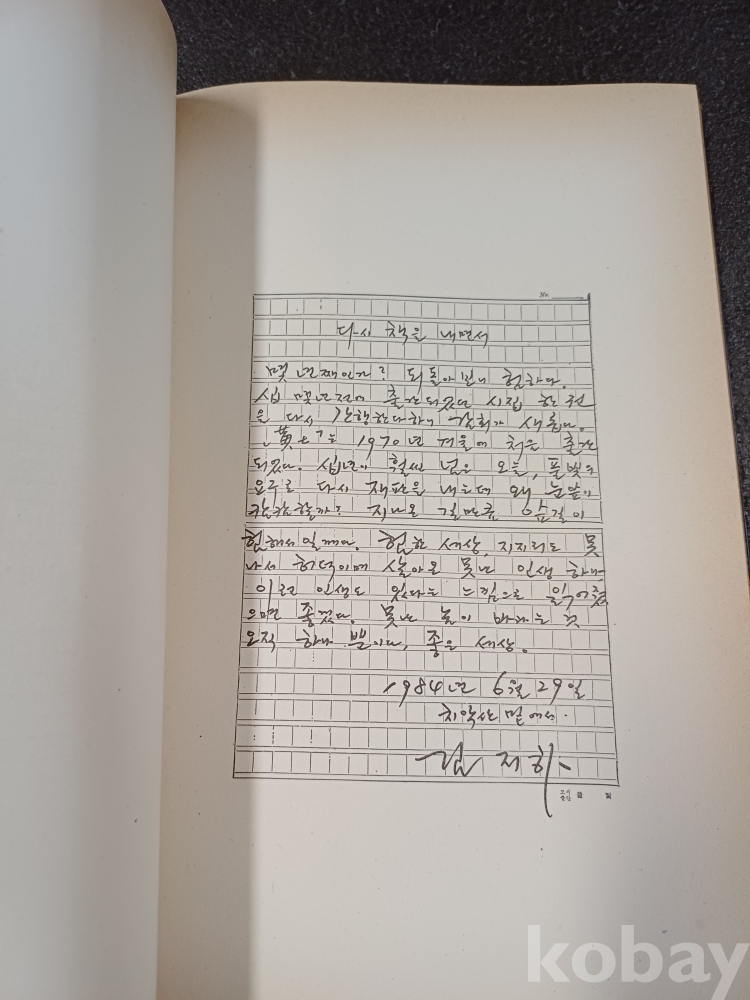 No.
다시 책을 내면서
몇 년째인가? 되돌아보니 험하다.
십 몇 년전에 출간되었던 시집 한 권
을 다시 간행한다하니 감회가 새롭다.
「黃土」는 1970년 겨울에 처음 출간
되었다. 십년이 훨씬 넘은 오늘, 풀빛의
요구로 다시 재판을 내는데 왜 눈앞이
캄캄할까? 지나온 길만큼 앞길이
험해서일게다. 험한 세상, 지지리도 못
나서 허덕이며 살아온 못난 인생 하나.
이런 인생도 있다는 느낌으로 읽어줬
으면 좋겠다. 못난 놈이 바라는 것
오직 하나 뿐이다, 좋은 세상.
1984년 6월 29일
치악산 밑에서.
김지하
kobay